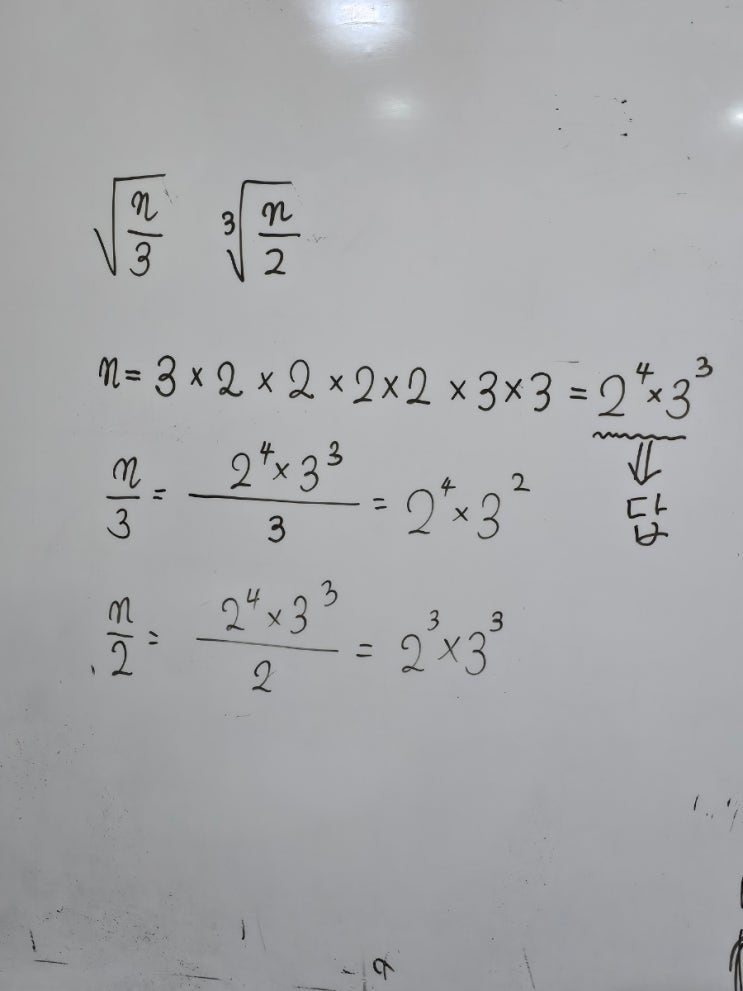 √(n/3) ³√(n/2)
n = 3 × 2 × 2 × 2 × 2 × 3 × 3 = 2⁴ × 3³
n/3 = (2⁴ × 3³)/3 = 2⁴ × 3²
⇓
답
n/2 = (2⁴ × 3³)/2 = 2³ × 3³